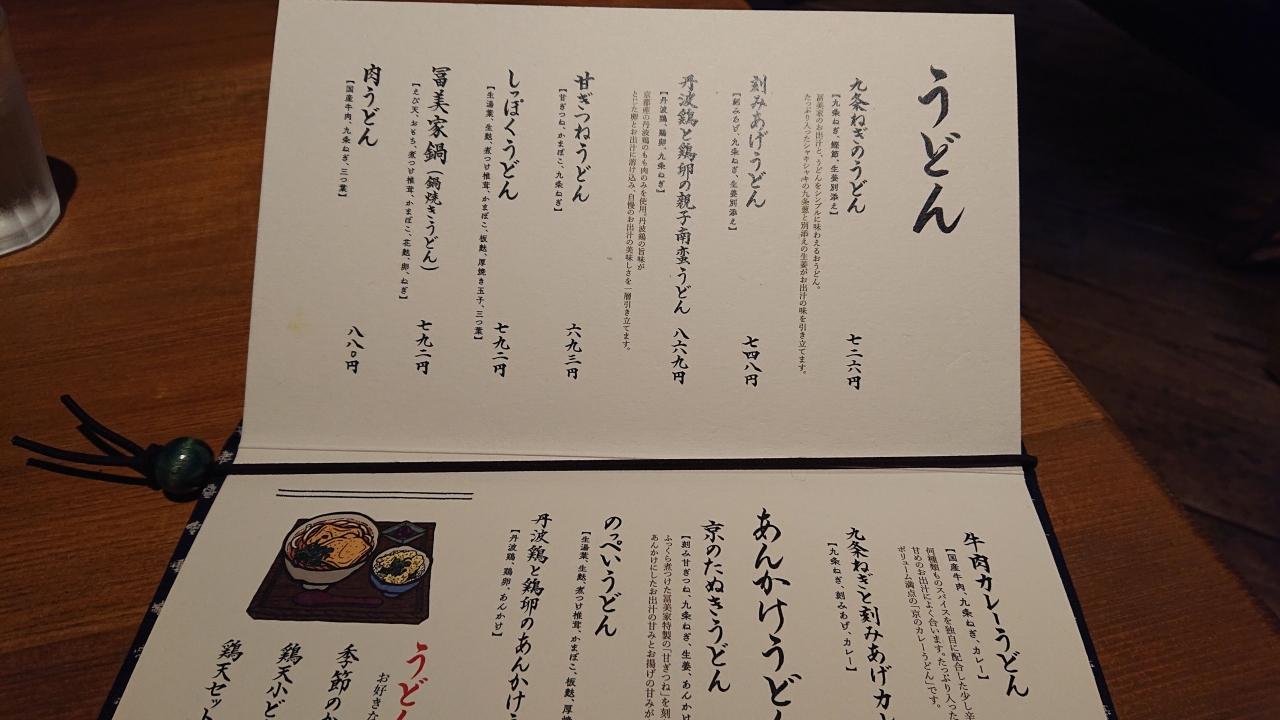 うどん
九条ねぎのうどん
【九条ねぎ、鰹節、生姜別添え】
冨美家のお出汁と、うどんをシンプルに味わえるおうどん。
たっぷり入ったシャキシャキの九条葱と別添えの生姜がお出汁の味を引き立てます。
七二六円
刻みあげうどん
【刻みあげ、九条ねぎ、生姜別添え】
七四八円
丹波鶏と鶏卵の親子南蛮うどん
【丹波鶏、鶏卵、九条ねぎ】
京都産の丹波鶏のもも肉のみを使用。丹波鶏の旨味が
とじた卵とお出汁に溶け込み、自慢のお出汁の美味しさを一層引き立てます。
八六九円
甘ぎつねうどん
【甘ぎつね、かまぼこ、九条ねぎ】
六九三円
しっぽくうどん
【生湯葉、生麩、煮つけ椎茸、かまぼこ、板麩、厚焼き玉子、三つ葉】
七九二円
冨美家鍋(鍋焼きうどん)
【えび天、おもち、煮つけ椎茸、かまぼこ、花麩、卵、ねぎ】
七九二円
肉うどん
【国産牛肉、九条ねぎ、三つ葉】
八八〇円
牛肉カレーうどん
【国産牛肉、九条ねぎ、カレー】
何種類ものスパイスを独自に配合した少し辛
甘めのお出汁によく合います。たっぷり入った
ボリューム満点の「京のカレーうどん」です。
九条ねぎと刻みあげカレ
【九条ねぎ、刻みあげ、カレー】
あんかけうどん
京のたぬきうどん
【刻み甘ぎつね、九条ねぎ、生姜、あんか
ふっくら煮つけた冨美家特製の「甘ぎつね」を刻
あんかけにしたお出汁の甘みとお揚げの甘みが
のっぺいうどん
【生湯葉、生麩、煮つけ椎茸、かまぼこ、板麩、厚焼
丹波鶏と鶏卵のあんかけう
【丹波鶏、鶏卵、あんかけ】
うどん
お好きな
季節のか
鶏天小ど
鶏天セット